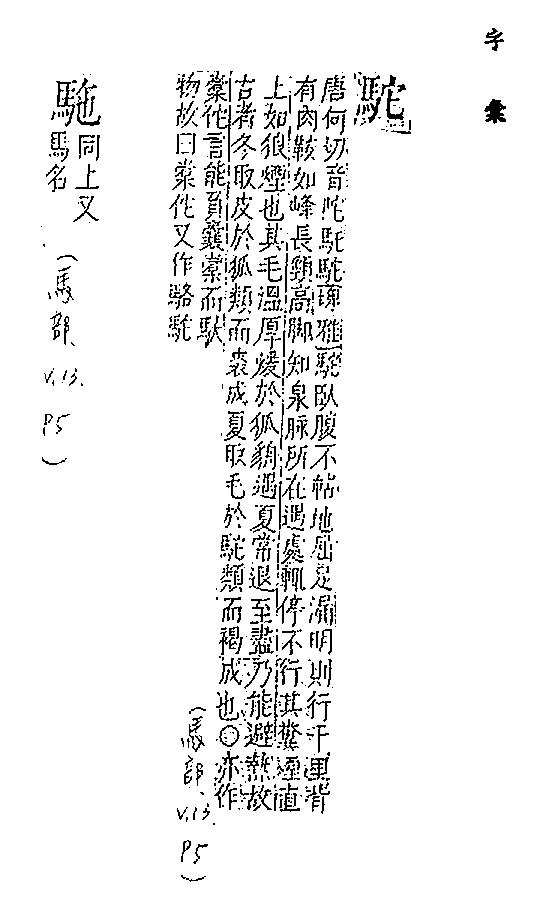 字彙
駝
唐何切音陀駝駝埤雅駝臥腹不帖地屈足漏明則行千里背
有肉鞍如峰長頸高脚知泉脉所在遇處輒停不行其糞煙直
上如狼煙也其毛溫厚煖於狐貉遇夏常退至盡乃能避熱故
古者冬取皮於狐類而裘成夏取毛於駝類而褐成也○亦作
橐佗言能負囊橐而馱
物故曰橐佗又作駱駝
(馬部、
V.13.
P5
)
駞
同上又
馬名
(馬部、
V.13.
P5
)